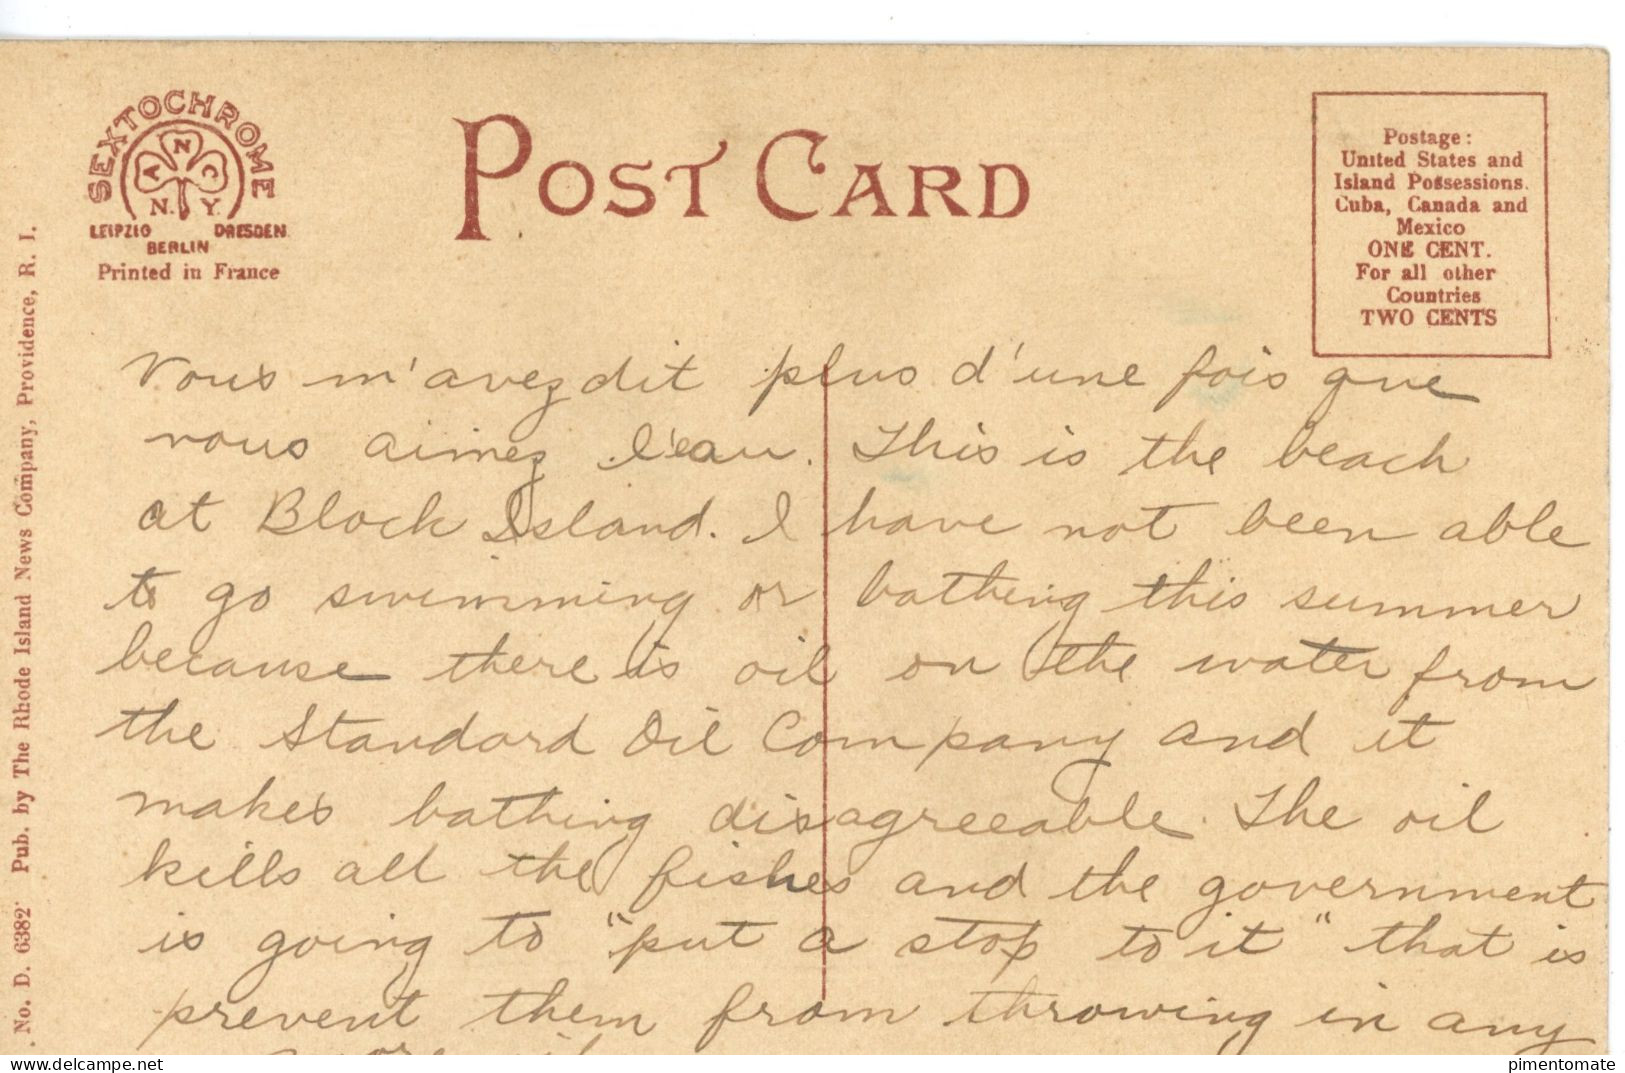 SEXTOCHROME
A N C
N. Y.
LEIPZIG DRESDEN
BERLIN
Printed in France
POST CARD
Postage:
United States and
Island Possessions.
Cuba, Canada and
Mexico
ONE CENT.
For all other
Countries
TWO CENTS
No. D. 6382 Pub. by The Rhode Island News Company, Providence, R. I.
Vous m'avez dit plus d'une fois que
vous aimez l'eau. This is the beach
at Block Island. I have not been able
to go swimming or bathing this summer
because there is oil on the water from
the Standard Oil Company and it
makes bathing disagreeable. The oil
kills all the fishes and the government
is going to "put a stop to it" that is
prevent them from throwing in any
delcampe.net
pimentomate